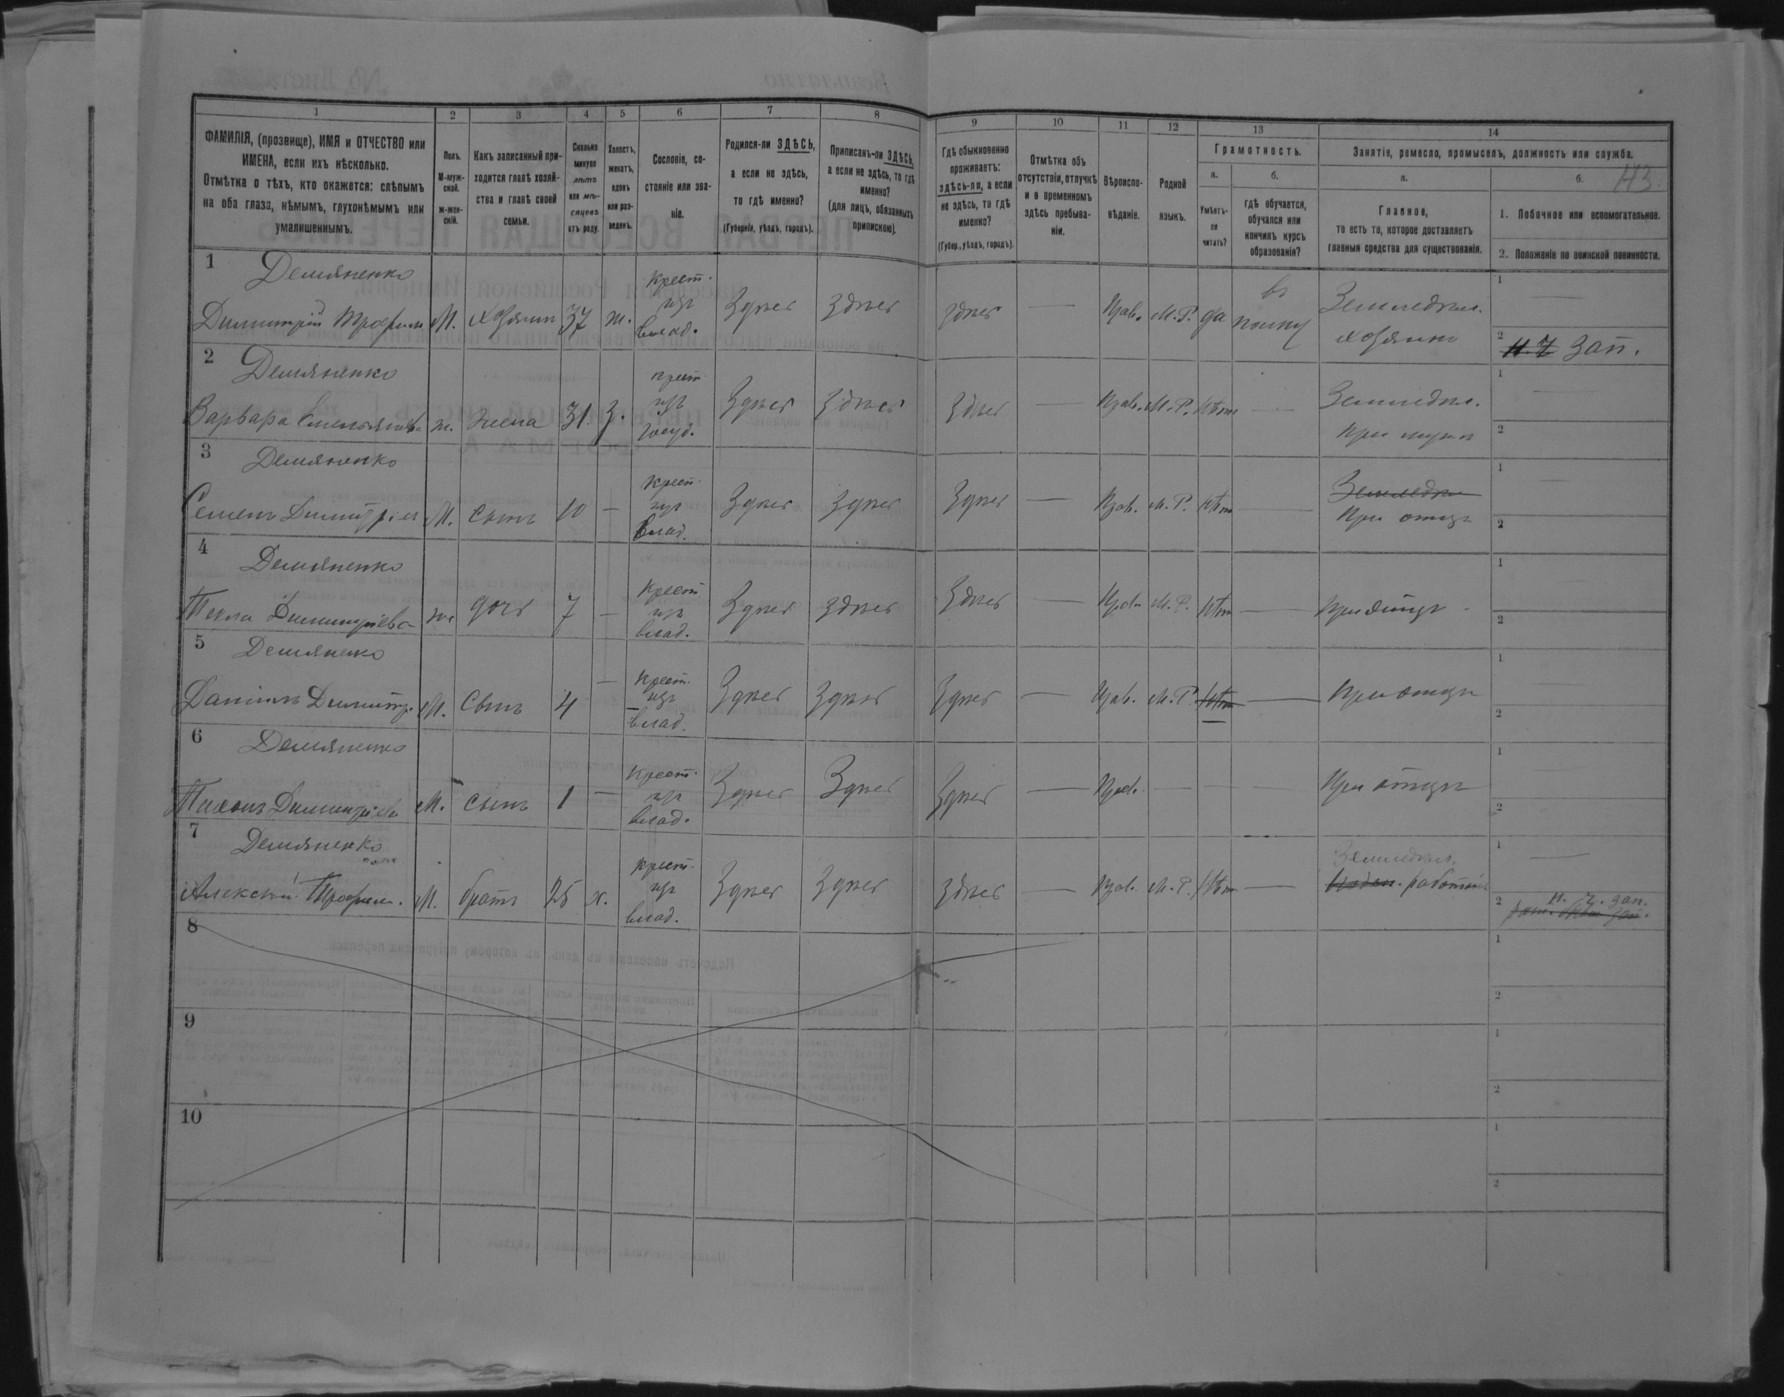 1 2 3 4 5 6 7 8 9 10 11 12 13 14
ФАМИЛІЯ, (прозвище), ИМЯ и ОТЧЕСТВО или ИМЕНА, если ихъ нѣсколько.
Отмѣтка о тѣхъ, кто окажется: слѣпымъ на оба глаза, нѣмымъ, глухонѣмымъ или умалишеннымъ.
Полъ. М-мужской. Ж-женскій.
Какъ записанный приходится главѣ хозяйства и главѣ своей семьи.
Сколько минуло лѣтъ или мѣсяцевъ отъ роду.
Холостъ, женатъ, вдовъ или разведенъ.
Сословіе, состояніе или званіе.
Родился-ли ЗДѢСЬ, а если не здѣсь, то гдѣ именно?
(Губернія, уѣздъ, городъ).
Приписанъ-ли ЗДѢСЬ, а если не здѣсь, то гдѣ именно?
(для лицъ, обязанныхъ припискою).
Гдѣ обыкновенно проживаетъ: здѣсь-ли, а если не здѣсь, то гдѣ именно?
(Губер., уѣздъ, городъ).
Отмѣтка объ отсутствіи, отлучкѣ и о временномъ здѣсь пребываніи.
Вѣроисповѣданіе.
Родной языкъ.
Грамотность.
а. Умѣетъ-ли читать?
б. гдѣ обучается, обучался или кончилъ курсъ образованія?
Занятіе, ремесло, промыселъ, должность или служба.
а. Главное, то есть то, которое доставляетъ главныя средства для существованія.
б. 43.
1. Побочное или вспомогательное.
2. Положеніе по воинской повинности.
1 Демяненко
Димитрій Трофим М. хозяинъ 37 ж. крест. изъ влад. Здѣсь здѣсь здѣсь — Прав. М.Р. да въ полку Земледѣл. хозяинъ 1 — 2 зап.
2 Демяненко
Варвара Емельянова ж. Жена 31 з. крест. изъ госуд. Здѣсь здѣсь здѣсь — Прав. М.Р. нѣтъ — Земледѣл. при мужѣ 1 2
3 Демяненко
Семенъ Димитріев М. сынъ 10 — крест. изъ влад. Здѣсь здѣсь здѣсь — Прав. М.Р. нѣтъ — Земледѣл при отцѣ 1 2
4 Демяненко
Текла Димитріева ж дочь 7 — крест. изъ влад. Здѣсь здѣсь здѣсь — Прав. М.Р. нѣтъ — при отцѣ 1 2
5 Демяненко
Даніилъ Димитр. М. Сынъ 4 — крест. изъ влад. Здѣсь здѣсь здѣсь — Прав. М.Р. нѣтъ — при отцѣ 1 2
6 Демяненко
Тихонъ Димитріев М. сынъ 1 — крест. изъ влад. Здѣсь Здѣсь здѣсь — Прав. — — — при отцѣ 1 2
7 Демяненко
Алексѣй Трофим. М. братъ 25 х. крест. изъ влад. Здѣсь здѣсь здѣсь — Прав. М.Р. нѣтъ — Земледѣл. работникъ 1 — 2 н. ч. зап.
8 1 2
9 1 2
10 1 2